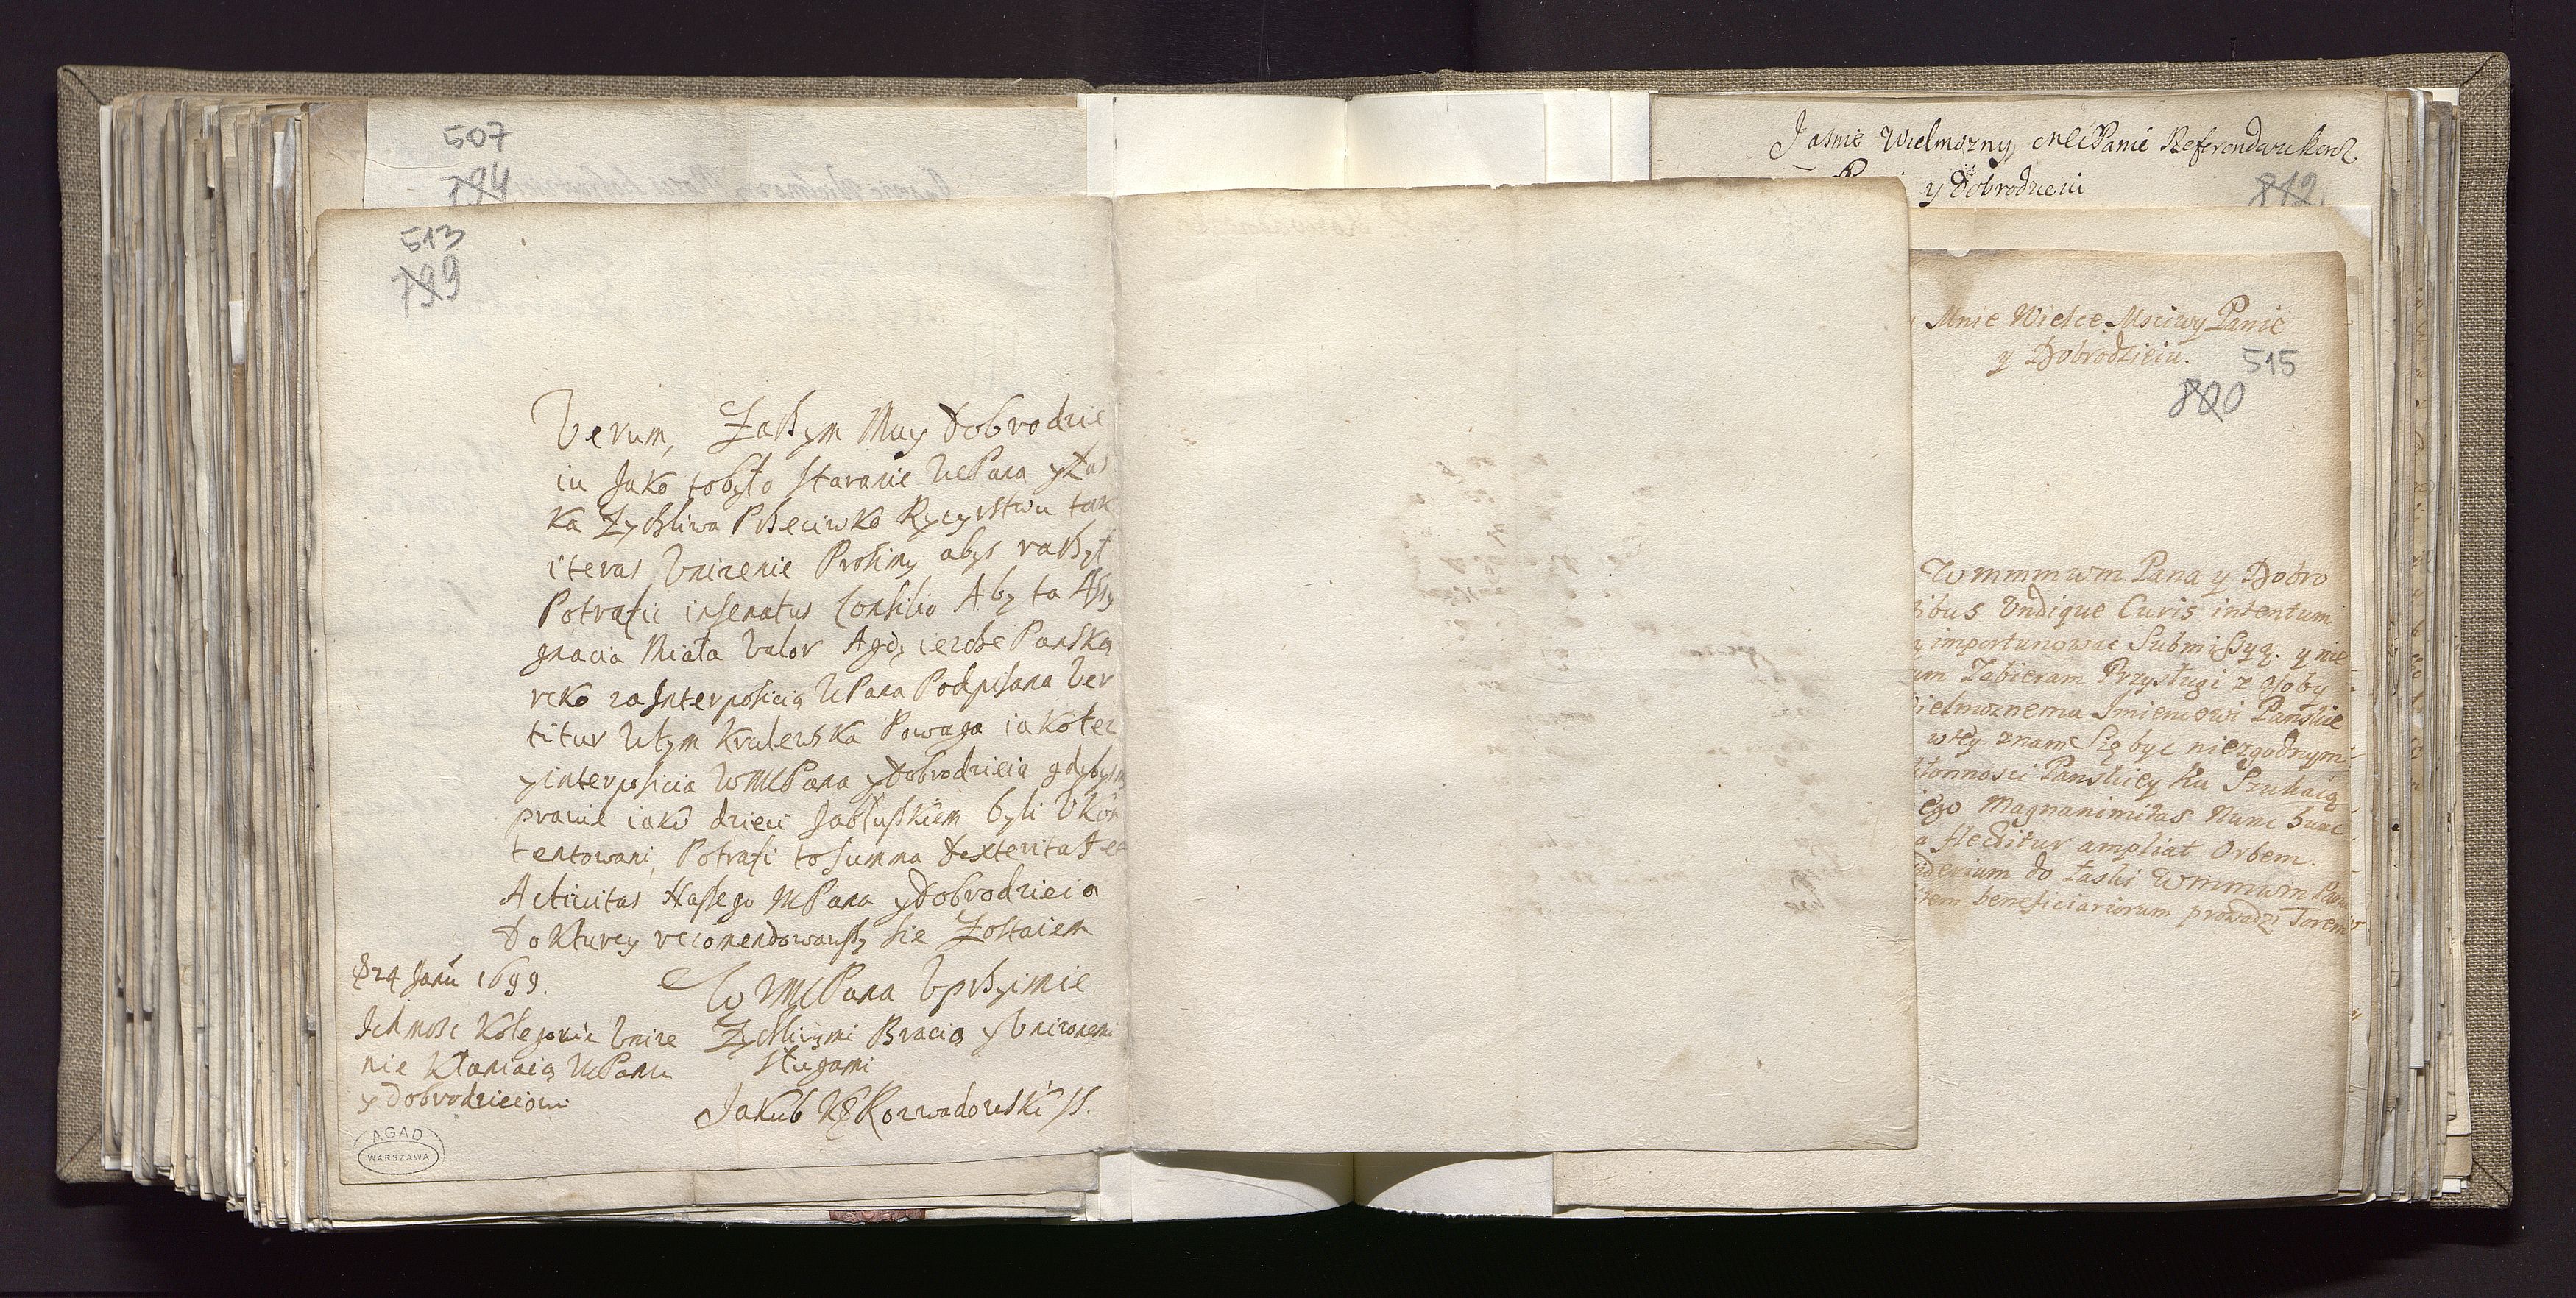 507
794
513
799
Verum, Zaszym Muy Dobrodzie
iu Jako tobyło staranie WcPana y Łas
ka Zyczliwa Przeciwko Rycyrstwu tak
i teras Vnizenie Prosimy abys raczył
Potrafic in senatus Consilio Aby ta Assy
gnacia Miała Valor A gdy iezdze Panska
reko za Interposicią WPana Podpisana Ver
titur W tym Krulewska Powaga iako tez
y interposicia WMcPana y Dobrodzieia gdybysmy
prawie iako dzieci Jabłuszkiem byli Vkon
tentowani, Potrafi to summa Dexteritas et
Activitas Naszego McPana y Dobrodzieia
Do Kturey recomendowawszy sie Zostaiem
24 Janu 1699.
W MMcPana Vprzyimie.
Ichmosc Kolegowie Vnize
nie Kłaniaią WcPanu
y Dobrodzieiowi
Zyczliwymi Bracią y Vnizonemi
sługami
Jakub Rozwadowski
AGAD
WARSZAWA
Jasnie Wielmozny MciPanie Referendarzu
y Dobrodzieiu
812
Mnie Wielce Msciwy Panie
y Dobrodzieiu.
515
800
Wmmmwm Pana y Dobro
ibus Vndique Curis intentum
importunowac Submissyą. y nie
um Zabieram Przysługi z osoby
ielmoznemu Imieniowi Panskie
w tey znam Się byc niezgodnym
łonnosci Panskiey Ku Szukaią
ego Magnanimitas Nunc hunc
a flectitur ampliat Orbem.
iderium do łaski Wmmmwm Pana
tem beneficiariorum prowadzi Torem